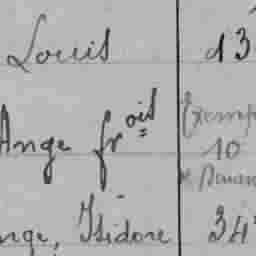 Louis 13
Ange fr ois
10
nge, Isidore 34